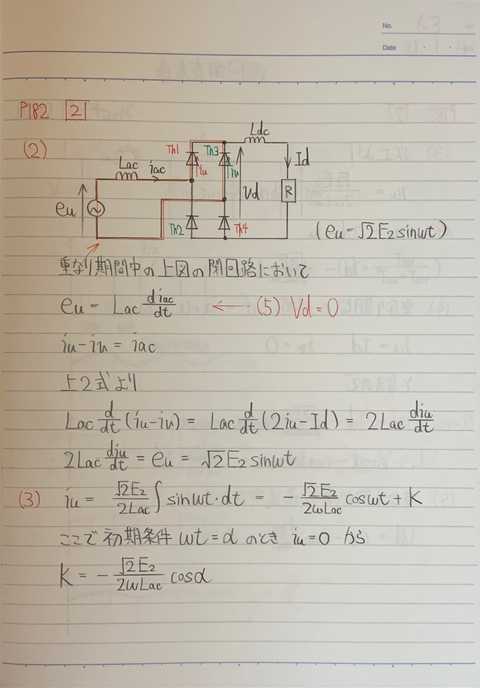 No.
Date
P182 [2]
(2)
Ldc
Th1
Th3
Lac
iac
iu
iv
Id
Vd
R
eu
Th2
Th4
(eu=√2E₂sinωt)
重なり期間中の上図の閉回路において
eu = Lac diac/dt ←-- (5) Vd=0
iu-iv = iac
上2式より
Lac d/dt (iu-iv) = Lac d/dt (2iu-Id) = 2Lac diu/dt
2Lac diu/dt = eu = √2E₂sinωt
(3) iu = √2E₂/2Lac ∫sinωt·dt = - √2E₂/2ωLac cosωt + K
ここで初期条件 ωt=α のとき iu=0 から
K = - √2E₂/2ωLac cosα